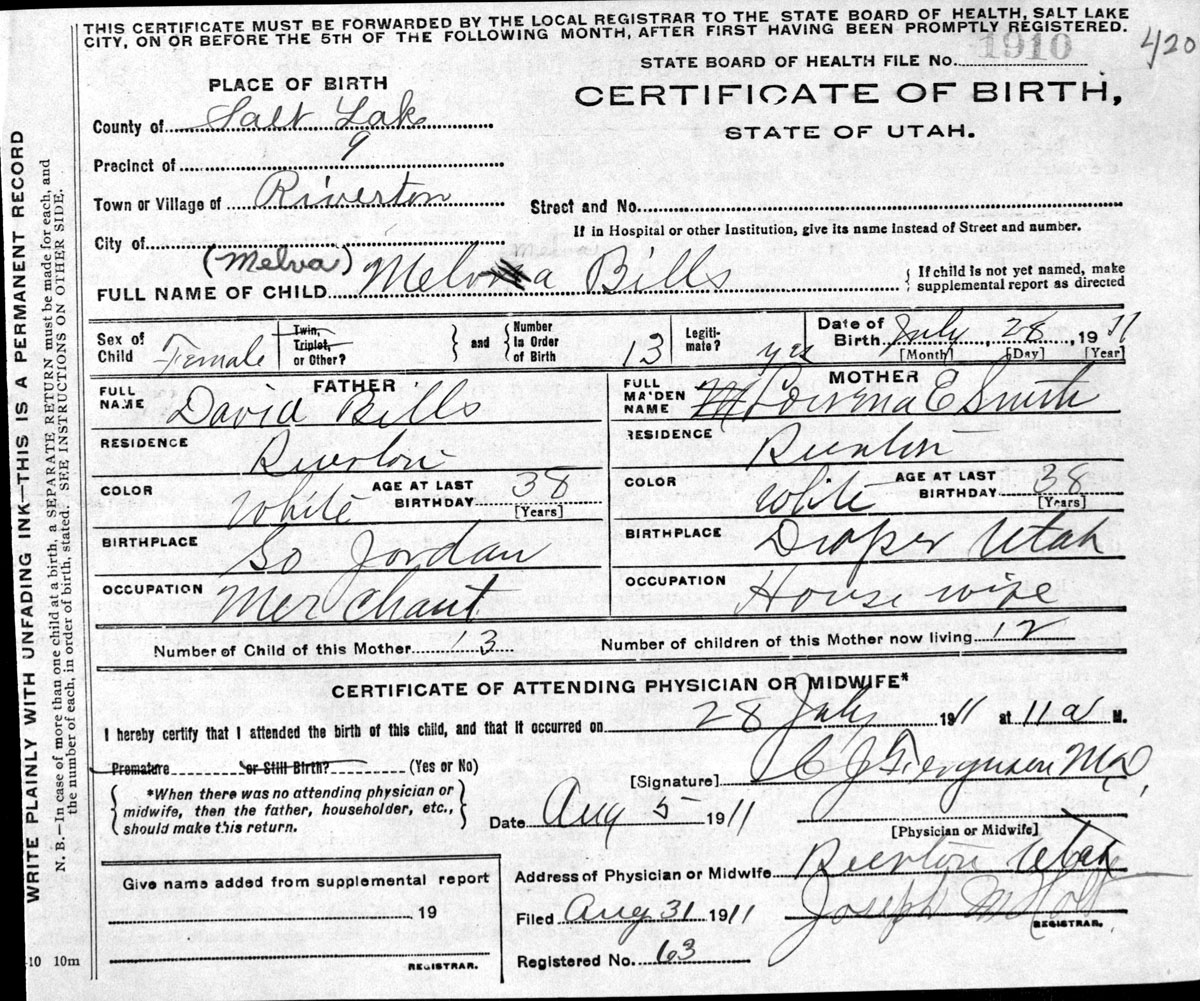 THIS CERTIFICATE MUST BE FORWARDED BY THE LOCAL REGISTRAR TO THE STATE BOARD OF HEALTH, SALT LAKE
CITY, ON OR BEFORE THE 5TH OF THE FOLLOWING MONTH, AFTER FIRST HAVING BEEN PROMPTLY REGISTERED.
1910
420
STATE BOARD OF HEALTH FILE No.
PLACE OF BIRTH
CERTIFICATE OF BIRTH,
STATE OF UTAH.
County of Salt Lake
Precinct of 9
Town or Village of Riverton
Street and No.
If in Hospital or other Institution, give its name instead of Street and number.
City of
(Melva)
FULL NAME OF CHILD Melva Bills
If child is not yet named, make
supplemental report as directed
Sex of Child Female
Twin, Triplet, or Other?
and
Number in Order of Birth 13
Legitimate? yes
Date of Birth July, 28, 1911
[Month] [Day] [Year]
FATHER
FULL NAME David Bills
RESIDENCE Riverton
COLOR White
AGE AT LAST BIRTHDAY 38
[Years]
BIRTHPLACE So Jordan
OCCUPATION Merchant
MOTHER
FULL MAIDEN NAME E Smith
RESIDENCE Riverton
COLOR White
AGE AT LAST BIRTHDAY 38
[Years]
BIRTHPLACE Draper Utah
OCCUPATION House wife
Number of Child of this Mother 13
Number of children of this Mother now living 12
CERTIFICATE OF ATTENDING PHYSICIAN OR MIDWIFE*
I hereby certify that I attended the birth of this child, and that it occurred on 28 July 1911 at 11 a M.
Premature or Still Birth? (Yes or No)
*When there was no attending physician or
midwife, then the father, householder, etc.,
should make this return.
[Signature] MD
Date Aug 5 1911
[Physician or Midwife]
Address of Physician or Midwife Riverton Utah
Filed Aug 31 1911
Joseph M Holt
REGISTRAR.
Registered No. 63
Give name added from supplemental report
19
REGISTRAR.
10 10m
WRITE PLAINLY WITH UNFADING INK—THIS IS A PERMANENT RECORD
N. B.—In case of more than one child at a birth, a SEPARATE RETURN must be made for each, and
the number of each, in order of birth, stated. SEE INSTRUCTIONS ON OTHER SIDE.